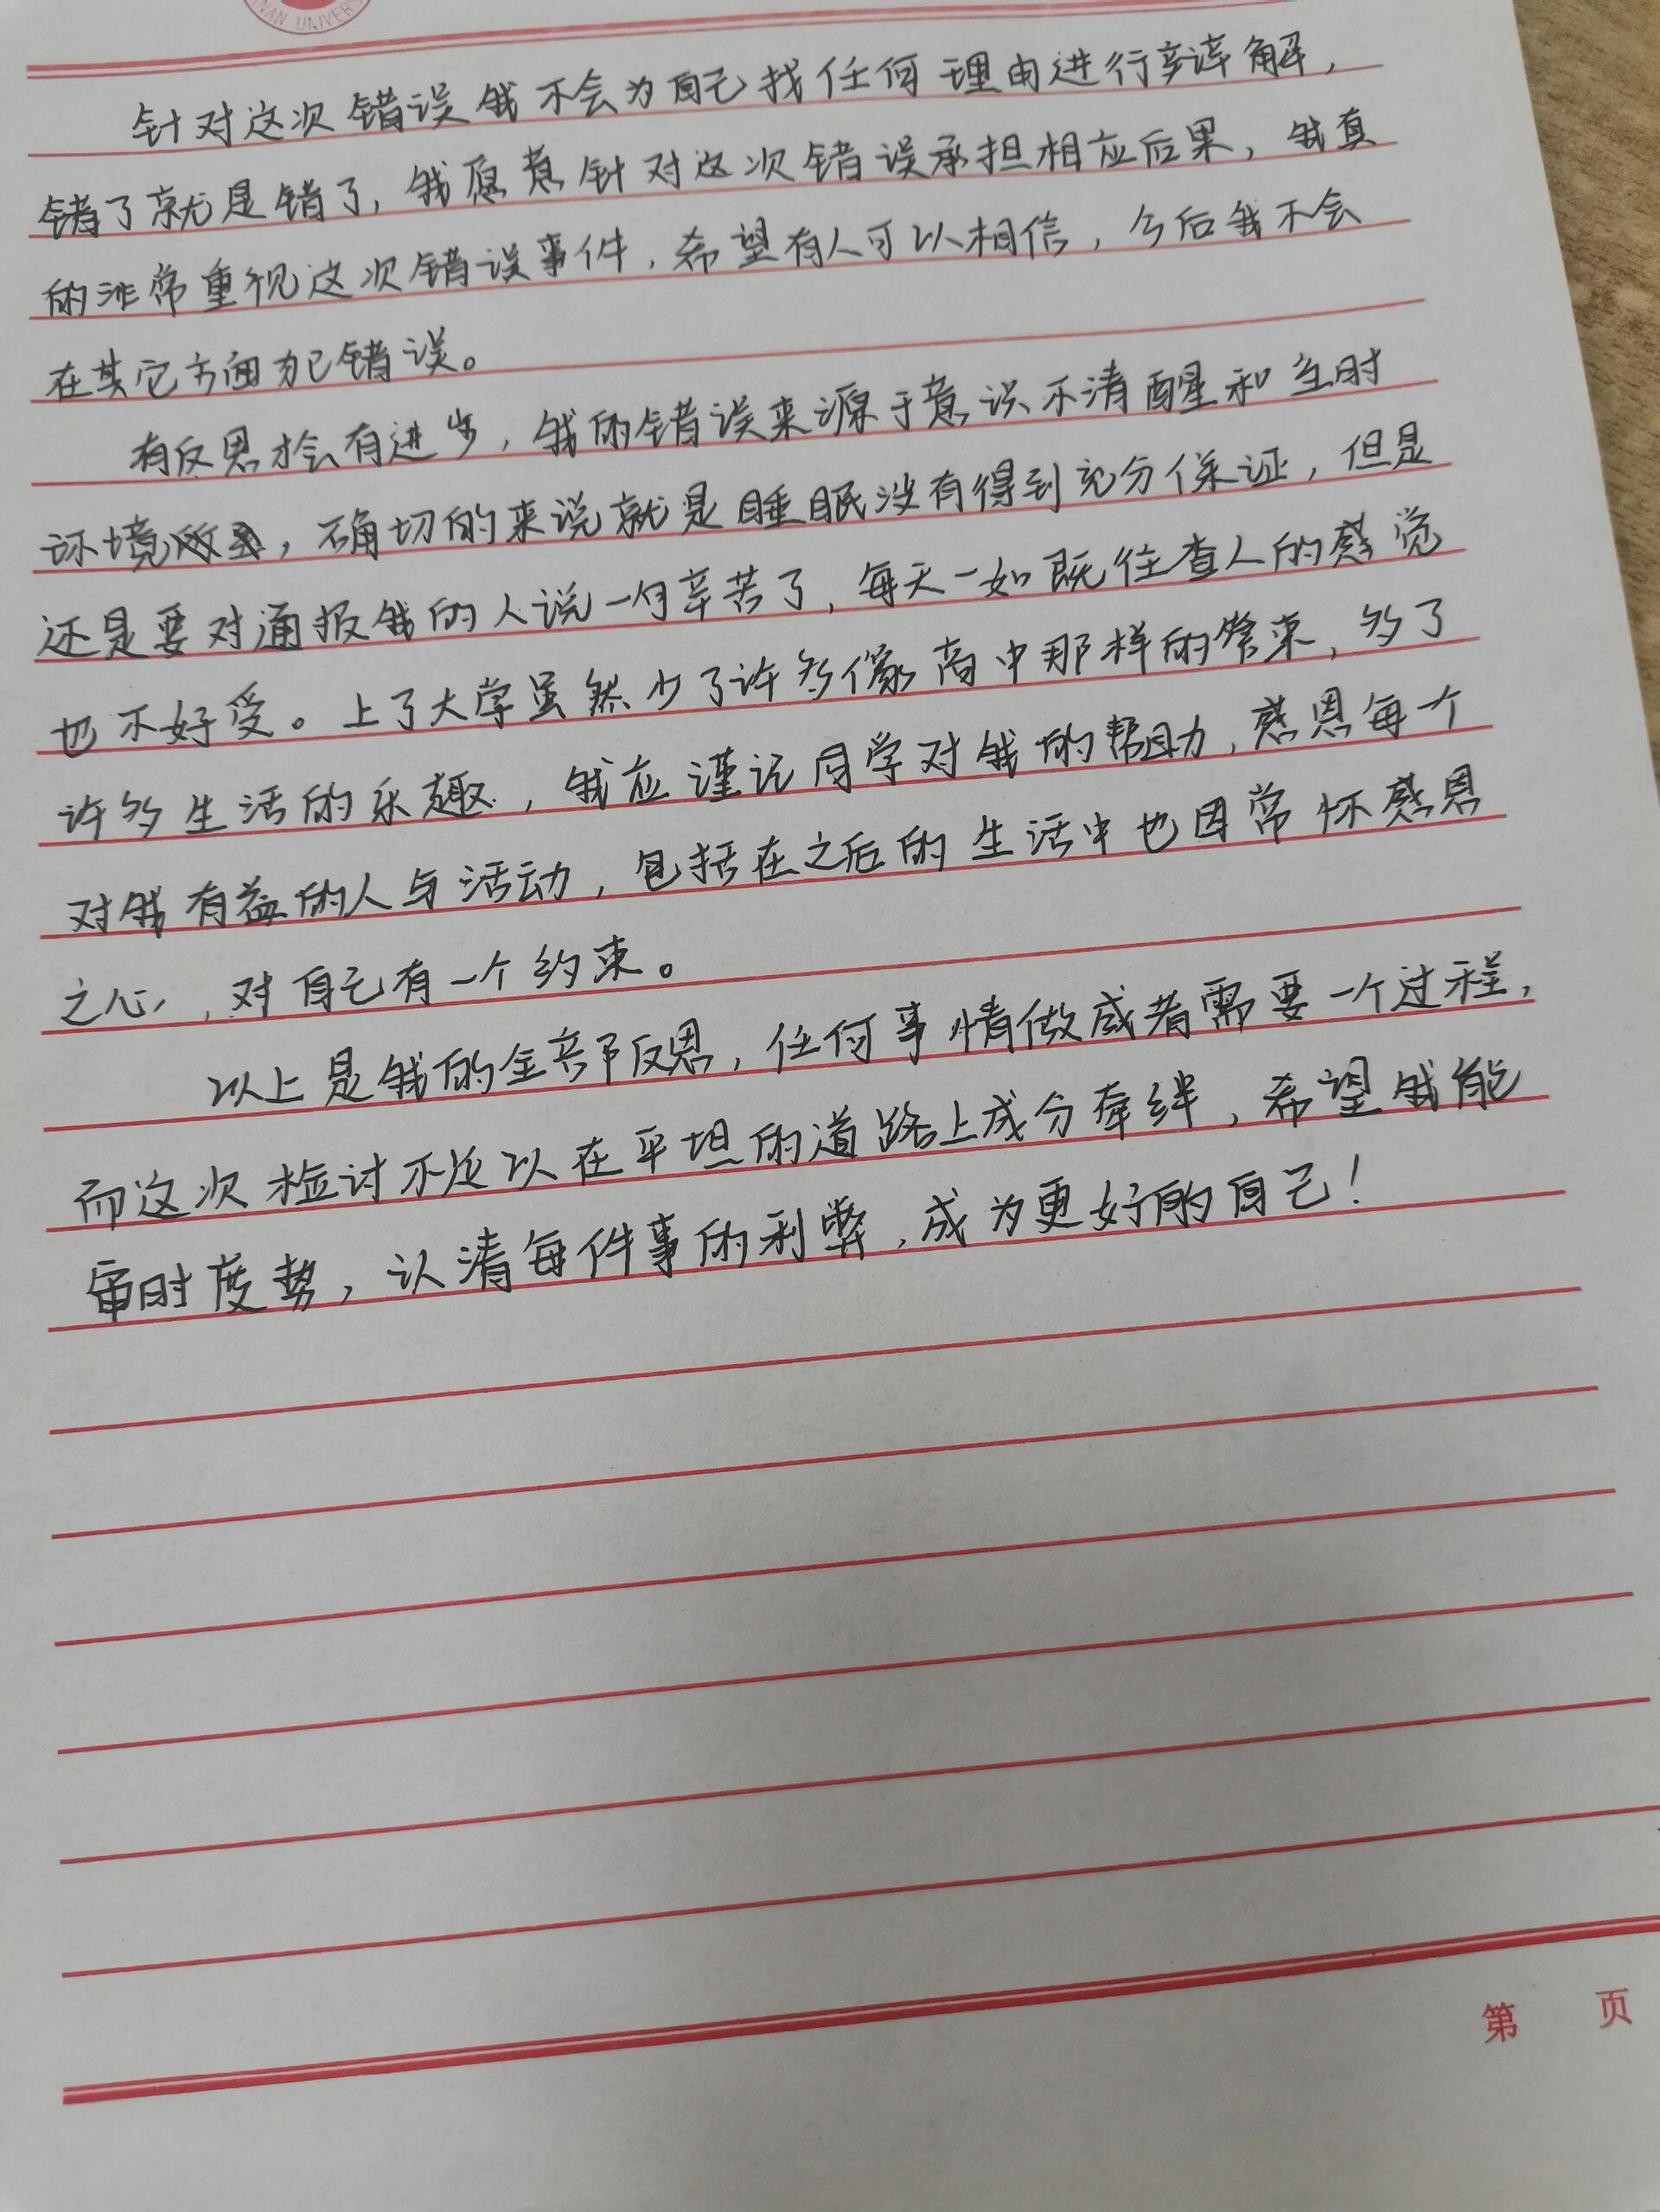 NAN UNIVERS
针对这次错误我不会为自己找任何理由进行辩解，
错了就是错了，我愿意针对这次错误承担相应后果，我真
的非常重视这次错误事件，希望有人可以相信，今后我不会
在其它方面犯错误。
有反思才会有进步，我的错误来源于意识不清醒和当时
环境所致，确切的来说就是睡眠没有得到充分保证，但是
还是要对通报我的人说一句辛苦了，每天一如既往查人的感觉
也不好受。上了大学虽然少了许多像高中那样的管束，多了
许多生活的乐趣，我应谨记同学对我的帮助，感恩每个
对我有益的人与活动，包括在之后的生活中也因常怀感恩
之心，对自己有一个约束。
以上是我的全部反思，任何事情做或者需要一个过程，
而这次检讨不足以在平坦的道路上成分牵绊，希望我能
审时度势，认清每件事的利弊，成为更好的自己！
第 页